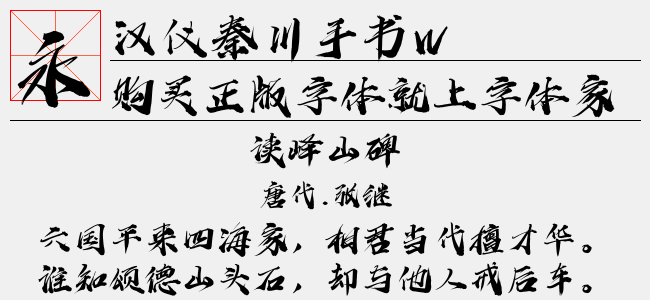 永
汉仪秦川手书W
购买正版字体就上字体家
读峄山碑
唐代.张继
六国平来四海家，相君当代擅才华。
谁知颂德山头石，却与他人戒后车。